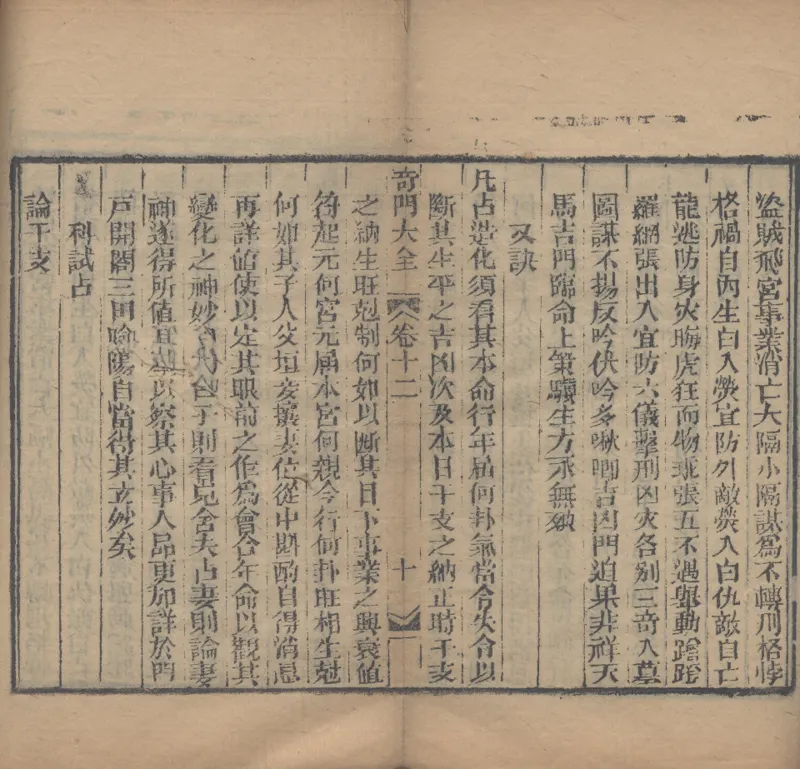 盜賊飛宮事業消亡大隔小隔謀爲不轉刑格悖
格禍自內生白入熒宜防外敵熒入白仇敵自亡
龍逃防身灾晦虎狂而物張五不遇舉動蹌
羅網張出入宜防六儀擊刑凶灾各别三奇入墓
圖謀不揚反吟伏吟多啾唧吉凶門迫果非祥天
馬吉門臨命上策驥生方示無
又訣
凡占造化須看其本命行年屆何卦氣當令失令以
斷其生平之吉凶次及本日干支之納正時干支
奇門大全 卷十二 十
之納生旺剋制何如以斷其目下事業之興衰值
符起元何宮元屆本宮何親今行何卦旺相生剋
何如其子人父垣妾攘妻位從中斟酌自得消息
再詳値使以定其眼前之作爲會合年命以觀其
變化之神妙占子則看兒舍夫占妻則論妻
神遂得所值以察其心事人品更加詳於門
戸開闔三田自當得其立妙矣
科試占
論干支